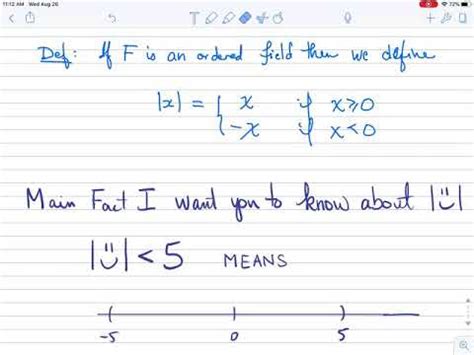 11:12 AM Wed Aug 26
72%
Def: If F is an ordered field then we define
|x| = { x if x≥0
-x if x<0
Main Fact I want you to know about |ü|
|ü| < 5 MEANS
-5 0 5